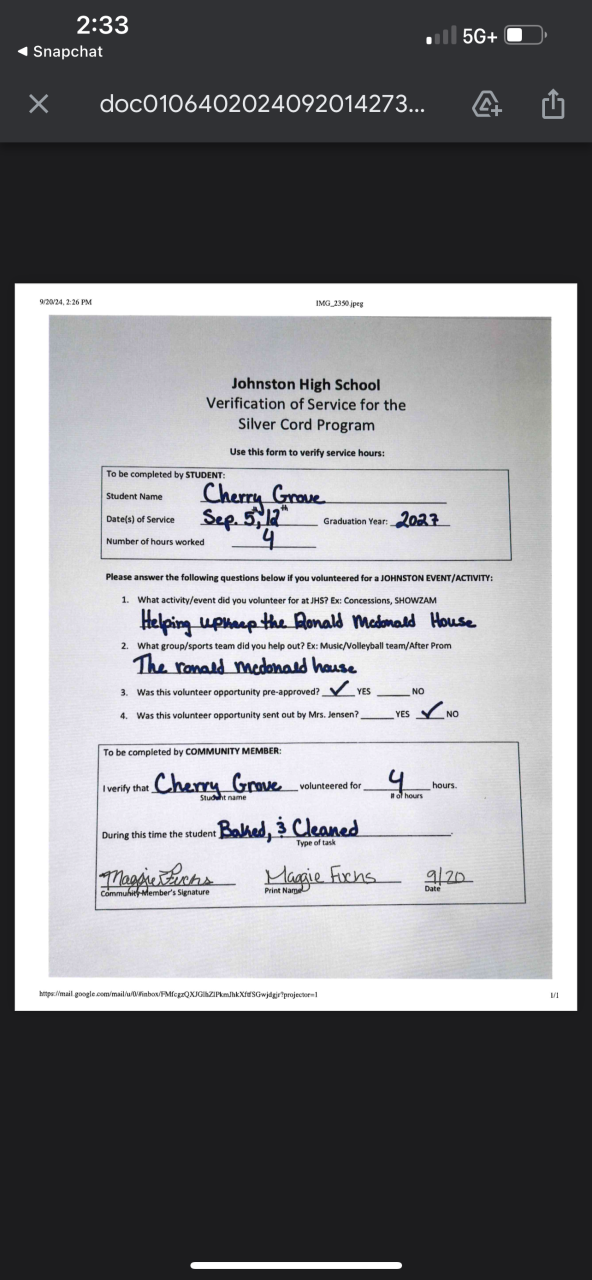 2:33
5G+
◄ Snapchat
doc0106402024092014273...
9/20/24, 2:26 PM
IMG_2350.jpeg
Johnston High School
Verification of Service for the
Silver Cord Program
Use this form to verify service hours:
To be completed by STUDENT:
Student Name Cherry Grove
Date(s) of Service Sep. 5th, 12th Graduation Year: 2027
Number of hours worked 4
Please answer the following questions below if you volunteered for a JOHNSTON EVENT/ACTIVITY:
1. What activity/event did you volunteer for at JHS? Ex: Concessions, SHOWZAM
Helping upkeep the Ronald Mcdonald House
2. What group/sports team did you help out? Ex: Music/Volleyball team/After Prom
The ronald mcdonald house
3. Was this volunteer opportunity pre-approved? ✓ YES NO
4. Was this volunteer opportunity sent out by Mrs. Jensen? YES ✓ NO
To be completed by COMMUNITY MEMBER:
I verify that Cherry Grove volunteered for 4 hours.
Student name # of hours
During this time the student Baked, & Cleaned.
Type of task
Maggie Fuchs Maggie Fuchs 9/20
Community Member's Signature Print Name Date
1/1